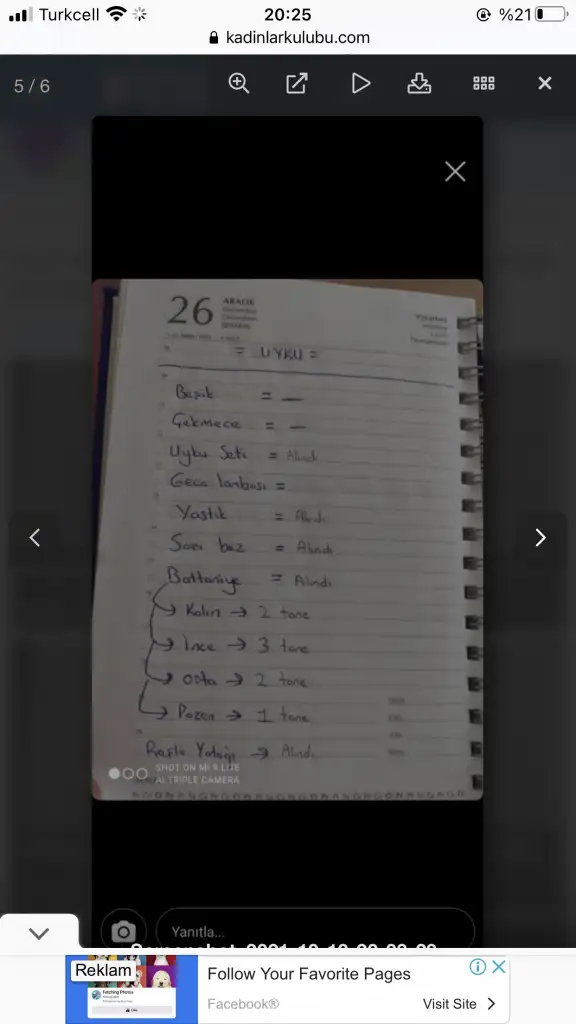 Turkcell
20:25
%21
kadinlarkulubu.com
5 / 6
26 ARALIK
= UYKU =
Beşik = —
Çekmece = —
Uyku Seti = Alındı
Gece lambası =
Yastık = Alındı
Sarı bez = Alındı
Battaniye = Alındı
Kalın → 2 tane
İnce → 3 tane
Orta → 2 tane
Pazen → 1 tane
Alındı
SHOT ON MI 9 LITE
AI TRIPLE CAMERA
Yanıtla...
Reklam
Follow Your Favorite Pages
Facebook®
Visit Site